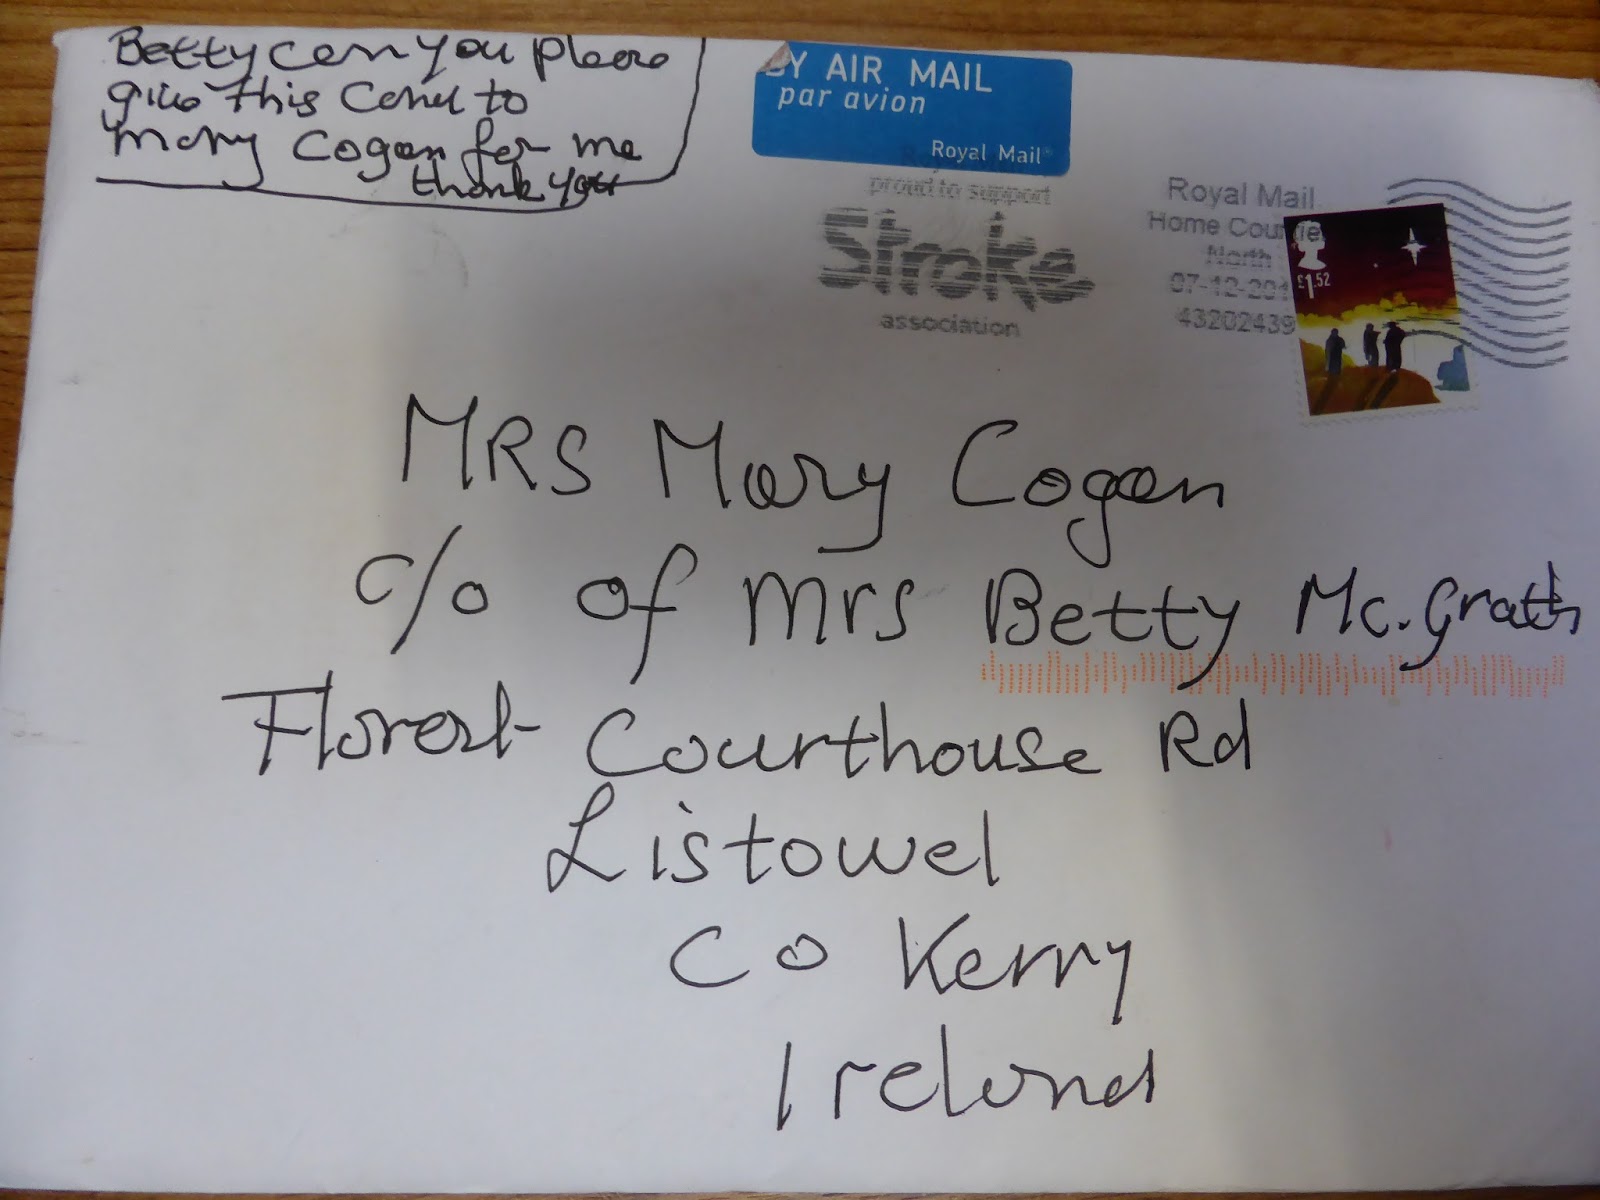 Betty can you please
give this card to
Mary Cogan for me
thank you
BY AIR MAIL
par avion
Royal Mail
proud to support
Stroke
association
Royal Mail
Home Counties
North
07-12-201
43202439
£1.52
MRS Mary Cogan
c/o of Mrs Betty Mc.Grath
Courthouse Rd
Listowel
CO Kerry
Ireland